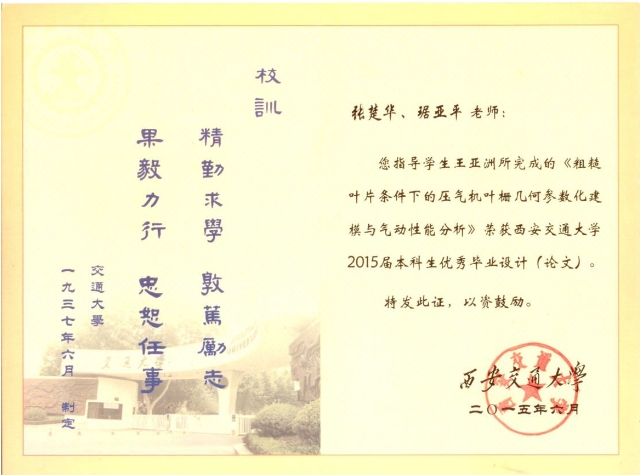 校訓
精勤求學 敦篤勵志
果毅力行 忠恕任事
交通大學
一九三七年六月 制定
张楚华、琚亚平 老师：
您指导学生王亚洲所完成的《粗糙
叶片条件下的压气机叶栅几何参数化建
模与气动性能分析》荣获西安交通大学
2015届本科生优秀毕业设计（论文）。
特发此证，以资鼓励。
西安交通大學
二〇一五年六月